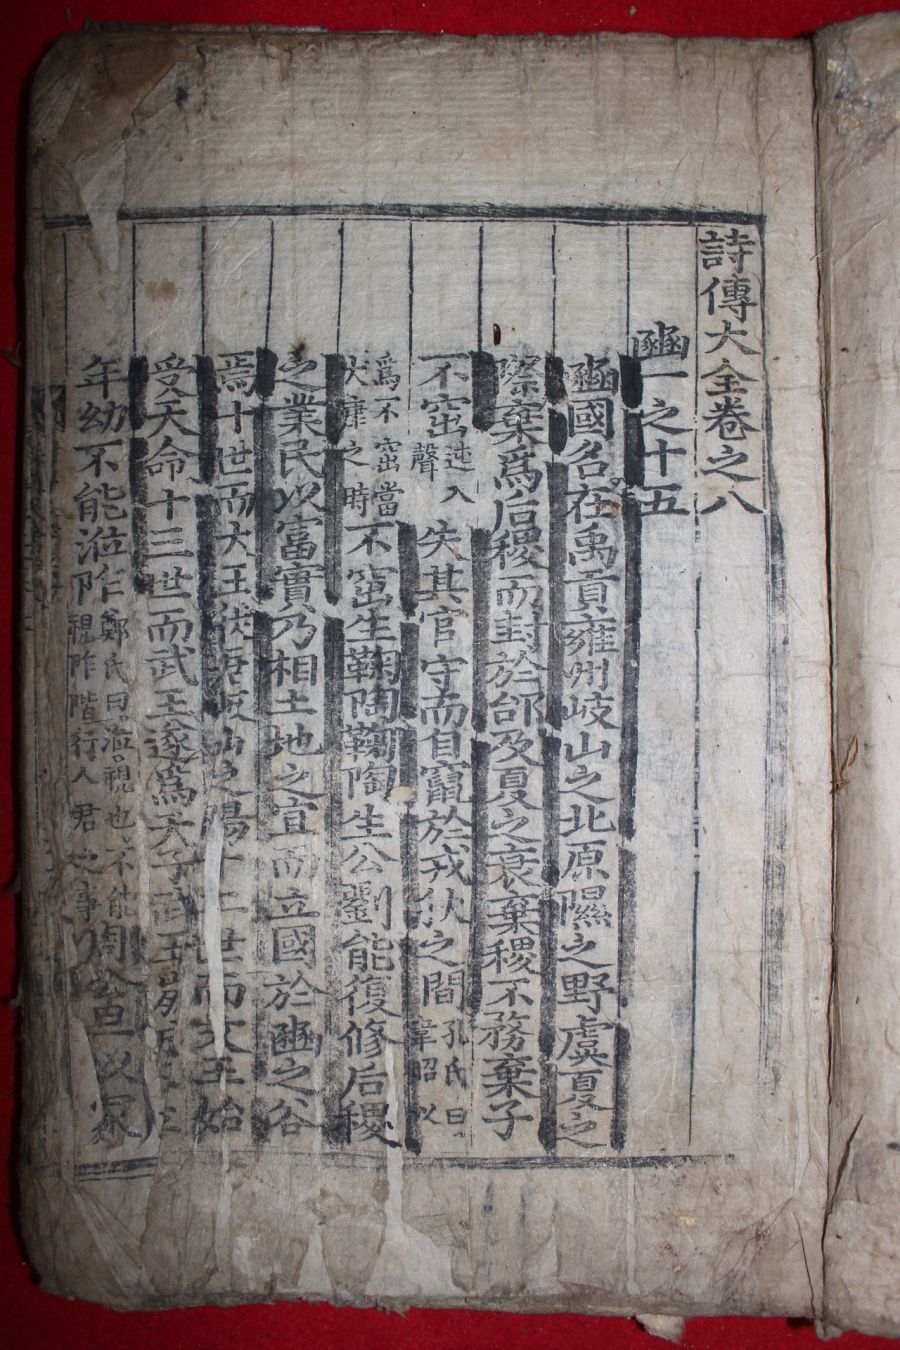 詩傳大全卷之八
豳一之十五
豳國名在禹貢雍州岐山之北原隰之野虞夏之
際棄爲后稷而封於邰及夏之衰棄稷不務棄子
不窋速入聲失其官守而自竄於戎狄之間孔氏曰韋昭以
爲不窋當大康之時不窋生鞠陶鞠陶生公劉能復修后稷
之業民以富實乃相土地之宜而立國於豳之谷
焉十世而大王徙居岐山之陽十二世而文王始
受天命十三世而武王遂爲天子武王崩成王
年幼不能涖阼鄭氏曰涖視也不能視阼階行人君之事周公旦以冢